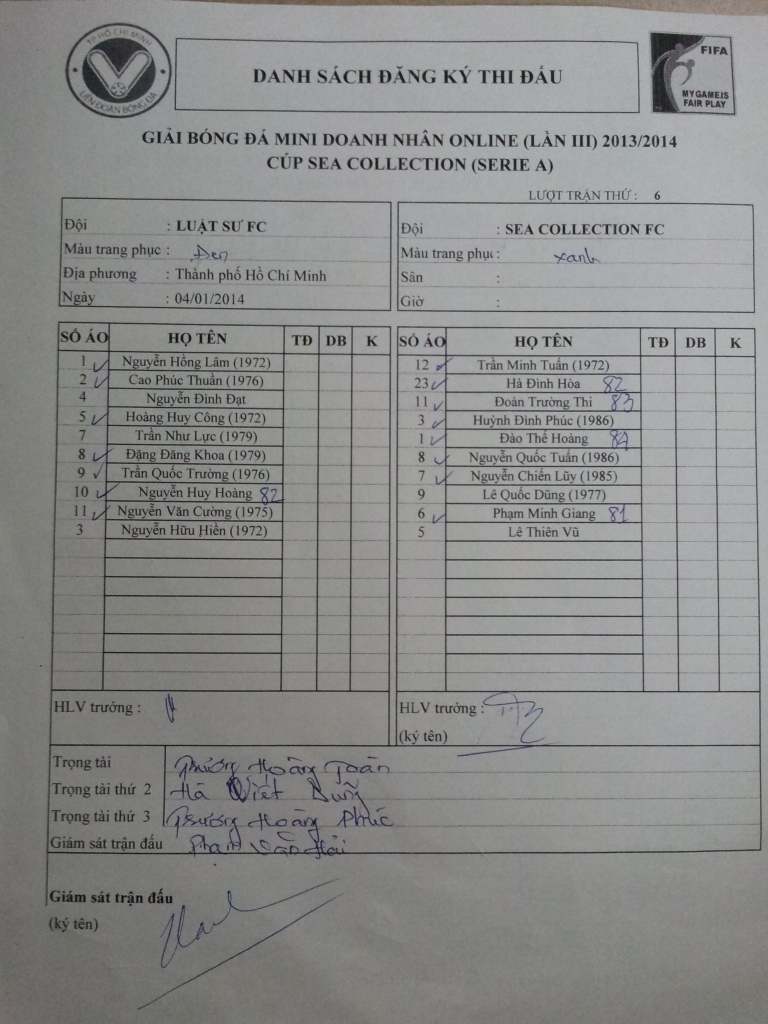 TP HỒ CHÍ MINH
LIÊN ĐOÀN BÓNG ĐÁ
DANH SÁCH ĐĂNG KÝ THI ĐẤU
FIFA
MY GAME IS
FAIR PLAY
GIẢI BÓNG ĐÁ MINI DOANH NHÂN ONLINE (LẦN III) 2013/2014
CÚP SEA COLLECTION (SERIE A)
LƯỢT TRẬN THỨ : 6
Đội : LUẬT SƯ FC
Màu trang phục : Đen
Địa phương : Thành phố Hồ Chí Minh
Ngày : 04/01/2014
Đội : SEA COLLECTION FC
Màu trang phục : xanh
Sân :
Giờ :
SỐ ÁO HỌ TÊN TĐ DB K
1 Nguyễn Hồng Lâm (1972)
2 Cao Phúc Thuần (1976)
4 Nguyễn Đình Đạt
5 Hoàng Huy Công (1972)
7 Trần Như Lực (1979)
8 Đặng Đăng Khoa (1979)
9 Trần Quốc Trường (1976)
10 Nguyễn Huy Hoàng 82
11 Nguyễn Văn Cường (1975)
3 Nguyễn Hữu Hiền (1972)
HLV trưởng :
SỐ ÁO HỌ TÊN TĐ DB K
12 Trần Minh Tuấn (1972)
23 Hà Đình Hòa 82
11 Đoàn Trường Thi 83
3 Huỳnh Đình Phúc (1986)
1 Đào Thế Hoàng
8 Nguyễn Quốc Tuấn (1986)
7 Nguyễn Chiến Lũy (1985)
9 Lê Quốc Dũng (1977)
6 Phạm Minh Giang 81
5 Lê Thiên Vũ
HLV trưởng :
(ký tên)
Trọng tài Trương Hoàng Toàn
Trọng tài thứ 2 Hà Việt Dũng
Trọng tài thứ 3 Trương Hoàng Phúc
Giám sát trận đấu Phạm Văn Hải
Giám sát trận đấu
(ký tên)